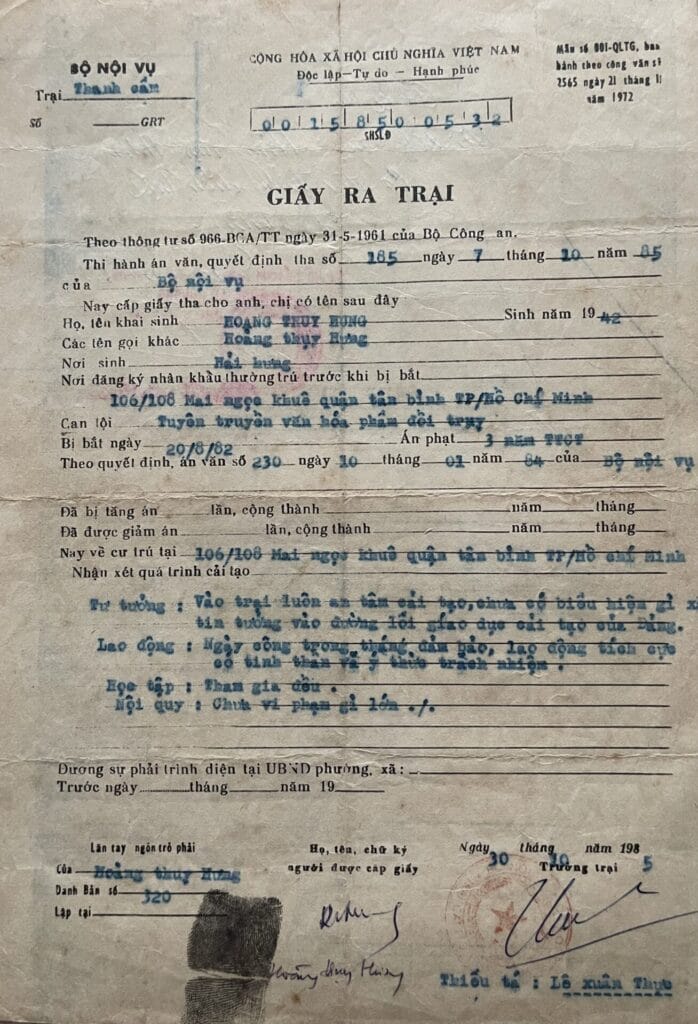 BỘ NỘI VỤ
Trại Thanh cẩm
Số GRT
CỘNG HÒA XÃ HỘI CHỦ NGHĨA VIỆT NAM
Độc lập—Tự do — Hạnh phúc
0 0 1 5 8 5 0 0 5 3 2
SHSLĐ
Mẫu số 001-QLTG, ban
hành theo công văn s
2565 ngày 21 tháng 1
năm 1972
GIẤY RA TRẠI
Theo thông tư số 966-BCA/TT ngày 31-5-1961 của Bộ Công an.
Thi hành án văn, quyết định tha số 185 ngày 7 tháng 10 năm 85
của Bộ nội vụ
Nay cấp giấy tha cho anh, chị có tên sau đây
Họ, tên khai sinh HOÀNG THUY HUNG Sinh năm 1942
Các tên gọi khác Hoàng thụy Hưng
Nơi sinh Hải hưng
Nơi đăng ký nhân khẩu thường trú trước khi bị bắt
106/108 Mai ngọc khuê quận tân bình TP/Hồ Chí Minh
Can tội Tuyên truyền văn hóa phẩm đồi trụy
Bị bắt ngày 20/8/82 Án phạt 3 năm TTCT
Theo quyết định, án văn số 230 ngày 10 tháng 01 năm 84 của Bộ nội vụ
Đã bị tăng án lần, cộng thành năm tháng
Đã được giảm án lần, cộng thành năm tháng
Nay về cư trú tại 106/108 Mai ngọc khuê quận tân bình TP/Hồ chí Minh
Nhận xét quá trình cải tạo
Tư tưởng : Vào trại luôn an tâm cải tạo, chưa có biểu hiện gì x
tin tưởng vào đường lối giáo dục cải tạo của Đảng.
Lao động : Ngày công trong tháng đảm bảo, lao động tích cực
có tinh thần và ý thức trách nhiệm .
Học tập : Tham gia đều .
Nội quy : Chưa vi phạm gì lớn ./.
Đương sự phải trình diện tại UBND phường, xã :
Trước ngày tháng năm 19
Lăn tay ngón trỏ phải
Của Hoàng thuy Hưng
Danh Bản số 320
Lập tại
Họ, tên, chữ ký
người được cấp giấy
Hoàng Thụy Hưng
Ngày 30 tháng 10 năm 1985
Trưởng trại
Thiếu tá : Lê xuân Thực